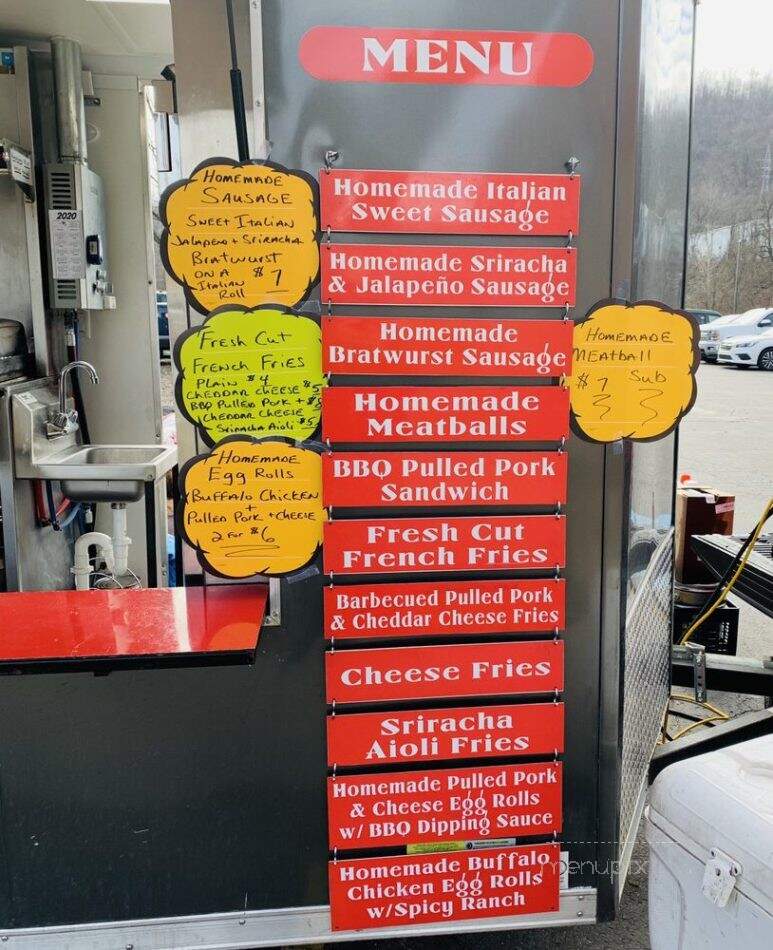 MENU
Homemade Italian
Sweet Sausage
Homemade Sriracha
& Jalapeño Sausage
Homemade
Bratwurst Sausage
Homemade
Meatballs
BBQ Pulled Pork
Sandwich
Fresh Cut
French Fries
Barbecued Pulled Pork
& Cheddar Cheese Fries
Cheese Fries
Sriracha
Aioli Fries
Homemade Pulled Pork
& Cheese Egg Rolls
w/ BBQ Dipping Sauce
Homemade Buffalo
Chicken Egg Rolls
w/Spicy Ranch
HOMEMADE
SAUSAGE
SWEET ITALIAN
JALAPENO + SRIRACHA
BratWurst
ON A $7
ITALIAN
Roll
Fresh Cut
FRENCH FRIES
PLAIN $4
CHEDDAR CHEESE $5
BBQ Pulled Pork +
CHEDDAR CHEESE
SriRACHA Aioli $5
HOMEMADE
Egg Rolls
BUFFALO CHICKEN
+
Pulled Pork + CHEESE
2 FOR $6
HOMEMADE
MEATBALL
$7 Sub
2020
menupix